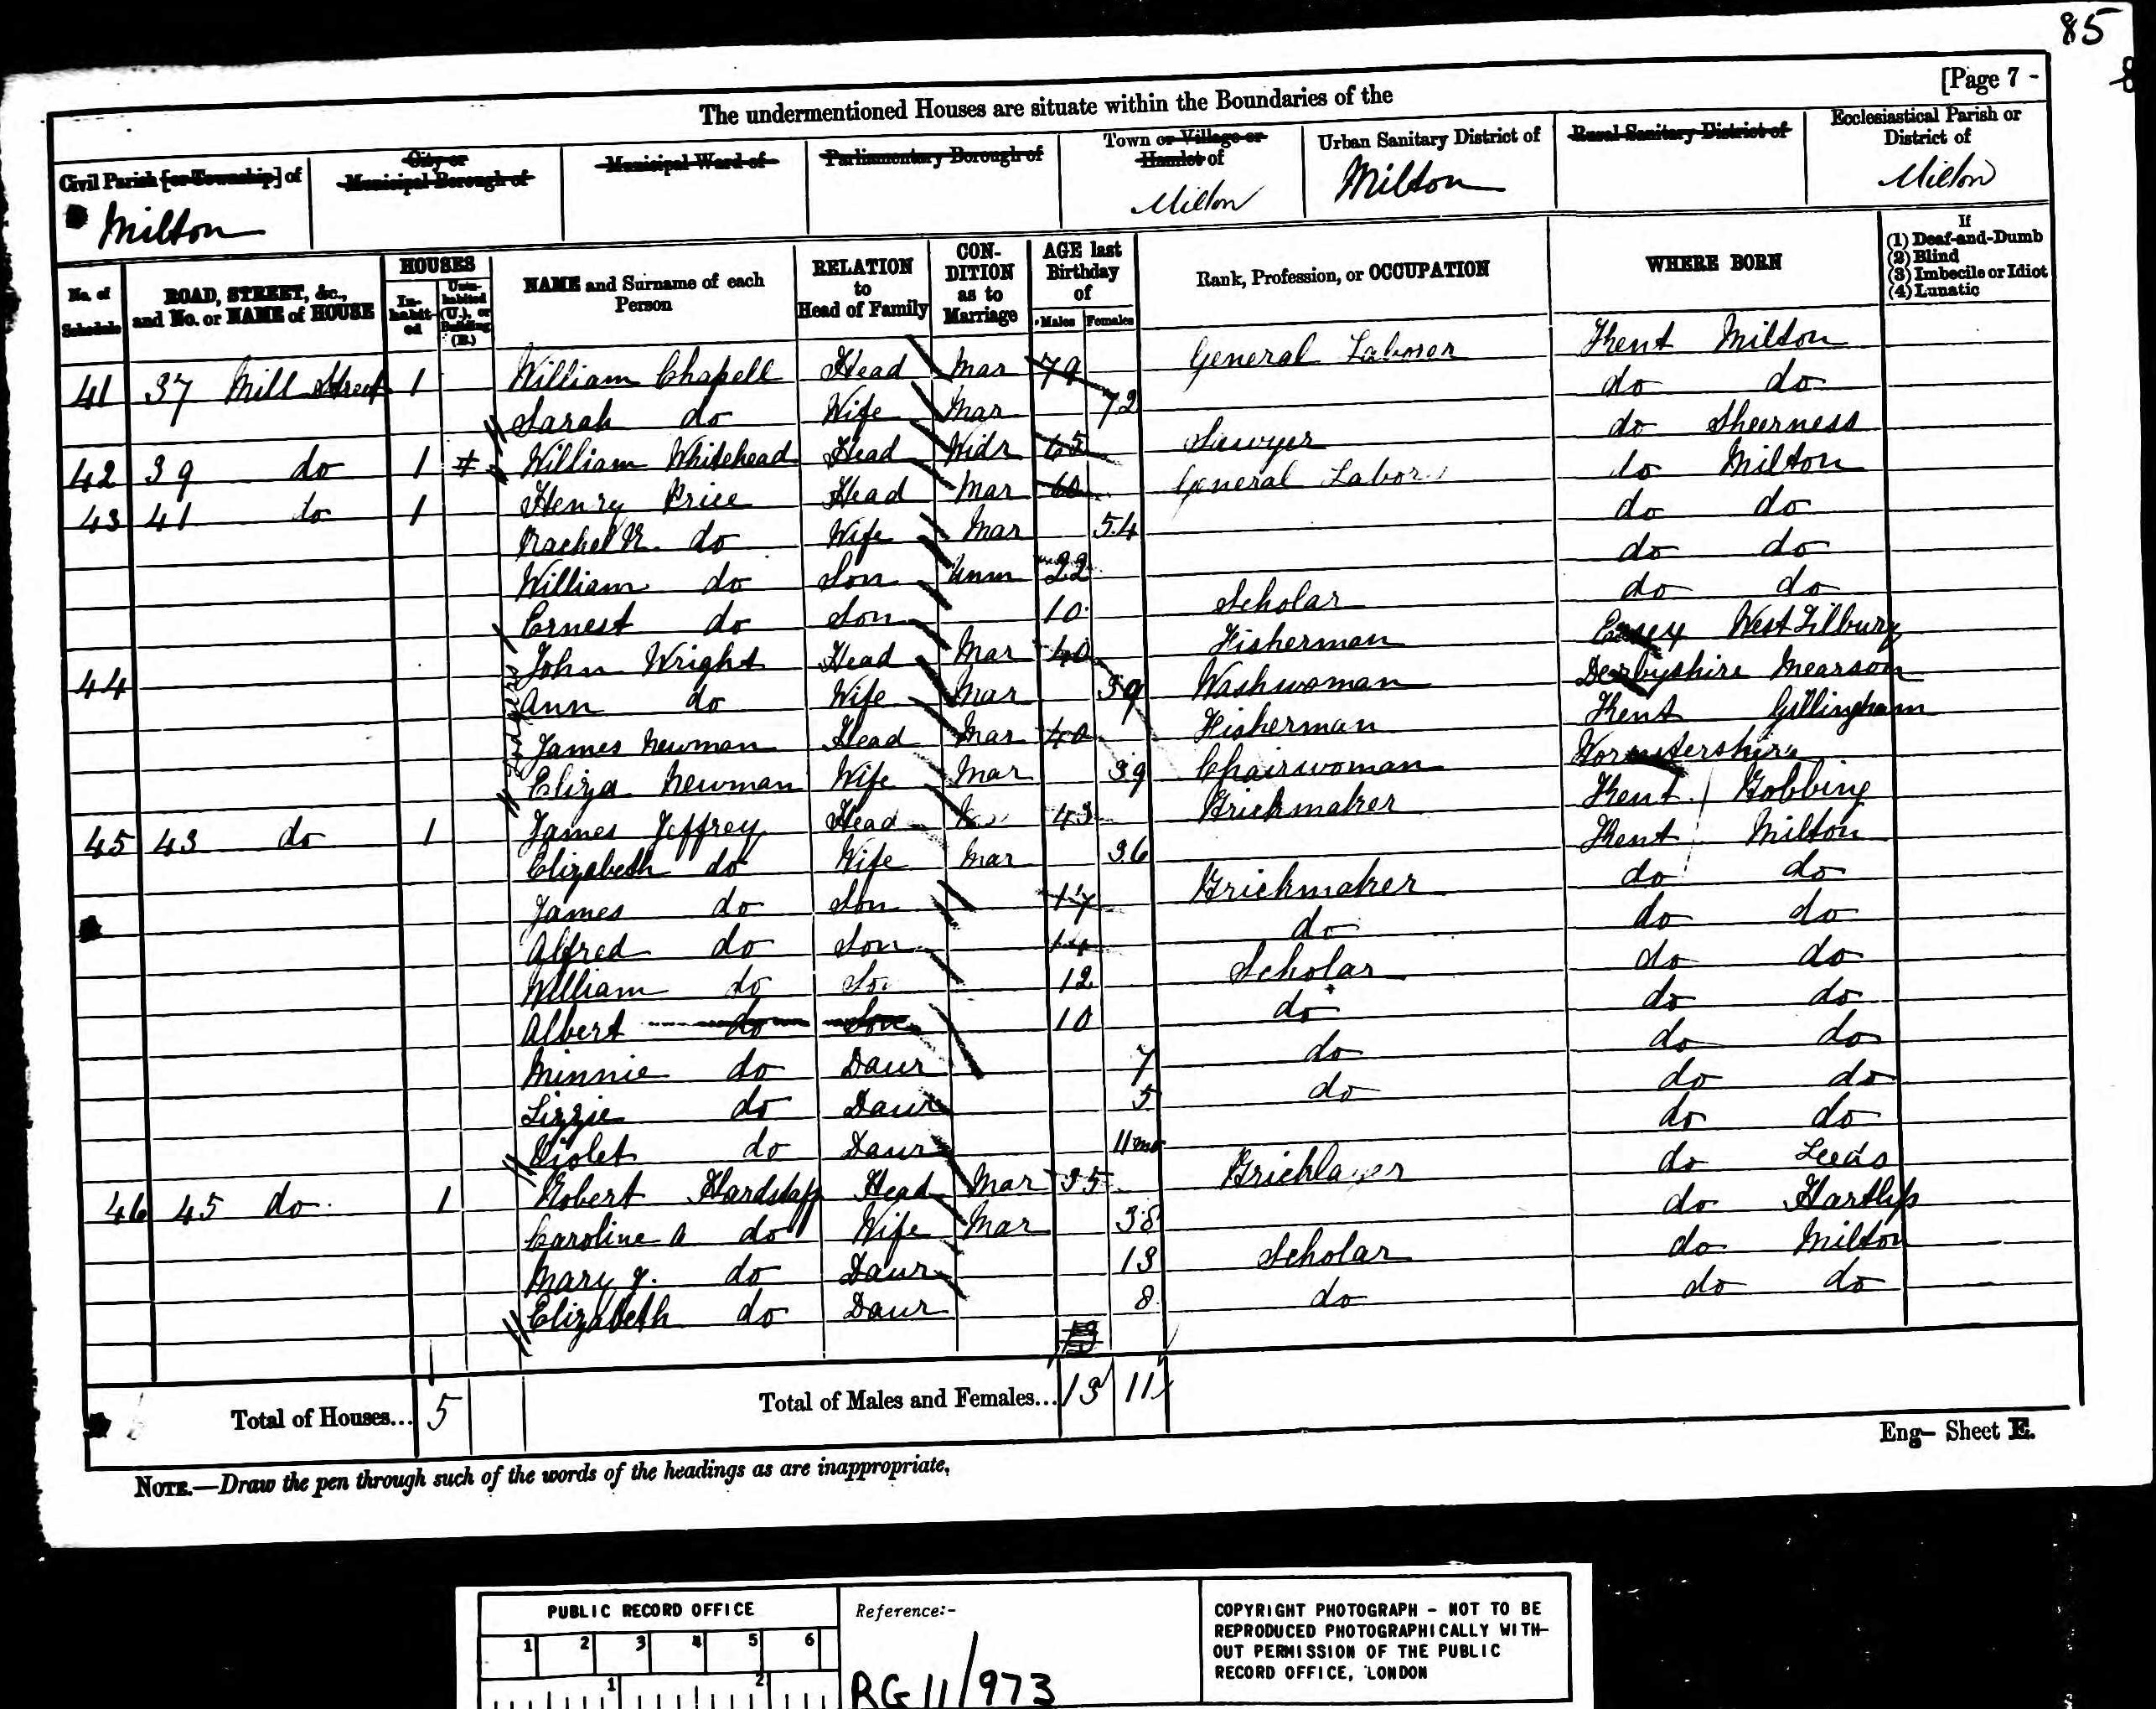 85
[Page 7 -
The undermentioned Houses are situate within the Boundaries of the
Civil Parish [or Township] of
City or Municipal Borough of
Municipal Ward of
Parliamentary Borough of
Town or Village or Hamlet of
Urban Sanitary District of
Rural Sanitary District of
Ecclesiastical Parish or District of
Milton Milton Milton Milton
No. of Schedule
ROAD, STREET, &c., and No. or NAME of HOUSE
HOUSES
Inhabited
Uninhabited (U.), or Building (B.)
NAME and Surname of each Person
RELATION to Head of Family
CONDITION as to Marriage
AGE last Birthday of
Males Females
Rank, Profession, or OCCUPATION
WHERE BORN
If
(1) Deaf-and-Dumb
(2) Blind
(3) Imbecile or Idiot
(4) Lunatic
41 37 Mill Street 1 William Chapell Head Mar 79 General Laborer Kent Milton
Sarah do Wife Mar 72 do do
42 39 do 1 William Whitehead Head Widr 65 Sawyer do Sheerness
43 41 do 1 Henry Price Head Mar 60 General Labor do Milton
Rachel do Wife Mar 54 do do
William do Son Unm 22 do do
Ernest do Son 10 Scholar do do
44 John Wright Head Mar 40 Fisherman Essex West Tilbury
Ann do Wife Mar 39 Washwoman Derbyshire Mearson
James Newman Head Mar 40 Fisherman Kent Gillingham
Lodgers
Eliza Newman Wife Mar 39 Chairwoman Worcestershire
45 43 do 1 James Jeffrey Head 43 Brickmaker Kent Bobbing
Elizabeth do Wife Mar 36 Kent Milton
James do Son 17 Brickmaker do do
Alfred do Son 14 do do do
William do Son 12 Scholar do do
Albert do Son 10 do do do
Minnie do Daur 7 do do do
Lizzie do Daur 5 do do do
Violet do Daur 11 mo do do
46 45 do 1 Robert Hardstaff Head Mar 35 Bricklayer do Leeds
Caroline A do Wife Mar 38 do Hartlip
Mary J. do Daur 13 Scholar do Milton
Elizabeth do Daur 8 do do do
Total of Houses... 5
Total of Males and Females... 13 11
Eng- Sheet E.
NOTE.—Draw the pen through such of the words of the headings as are inappropriate.
PUBLIC RECORD OFFICE
1 2 3 4 5 6
1 2
Reference:-
RG 11/973
COPYRIGHT PHOTOGRAPH - NOT TO BE
REPRODUCED PHOTOGRAPHICALLY WITH-
OUT PERMISSION OF THE PUBLIC
RECORD OFFICE, LONDON